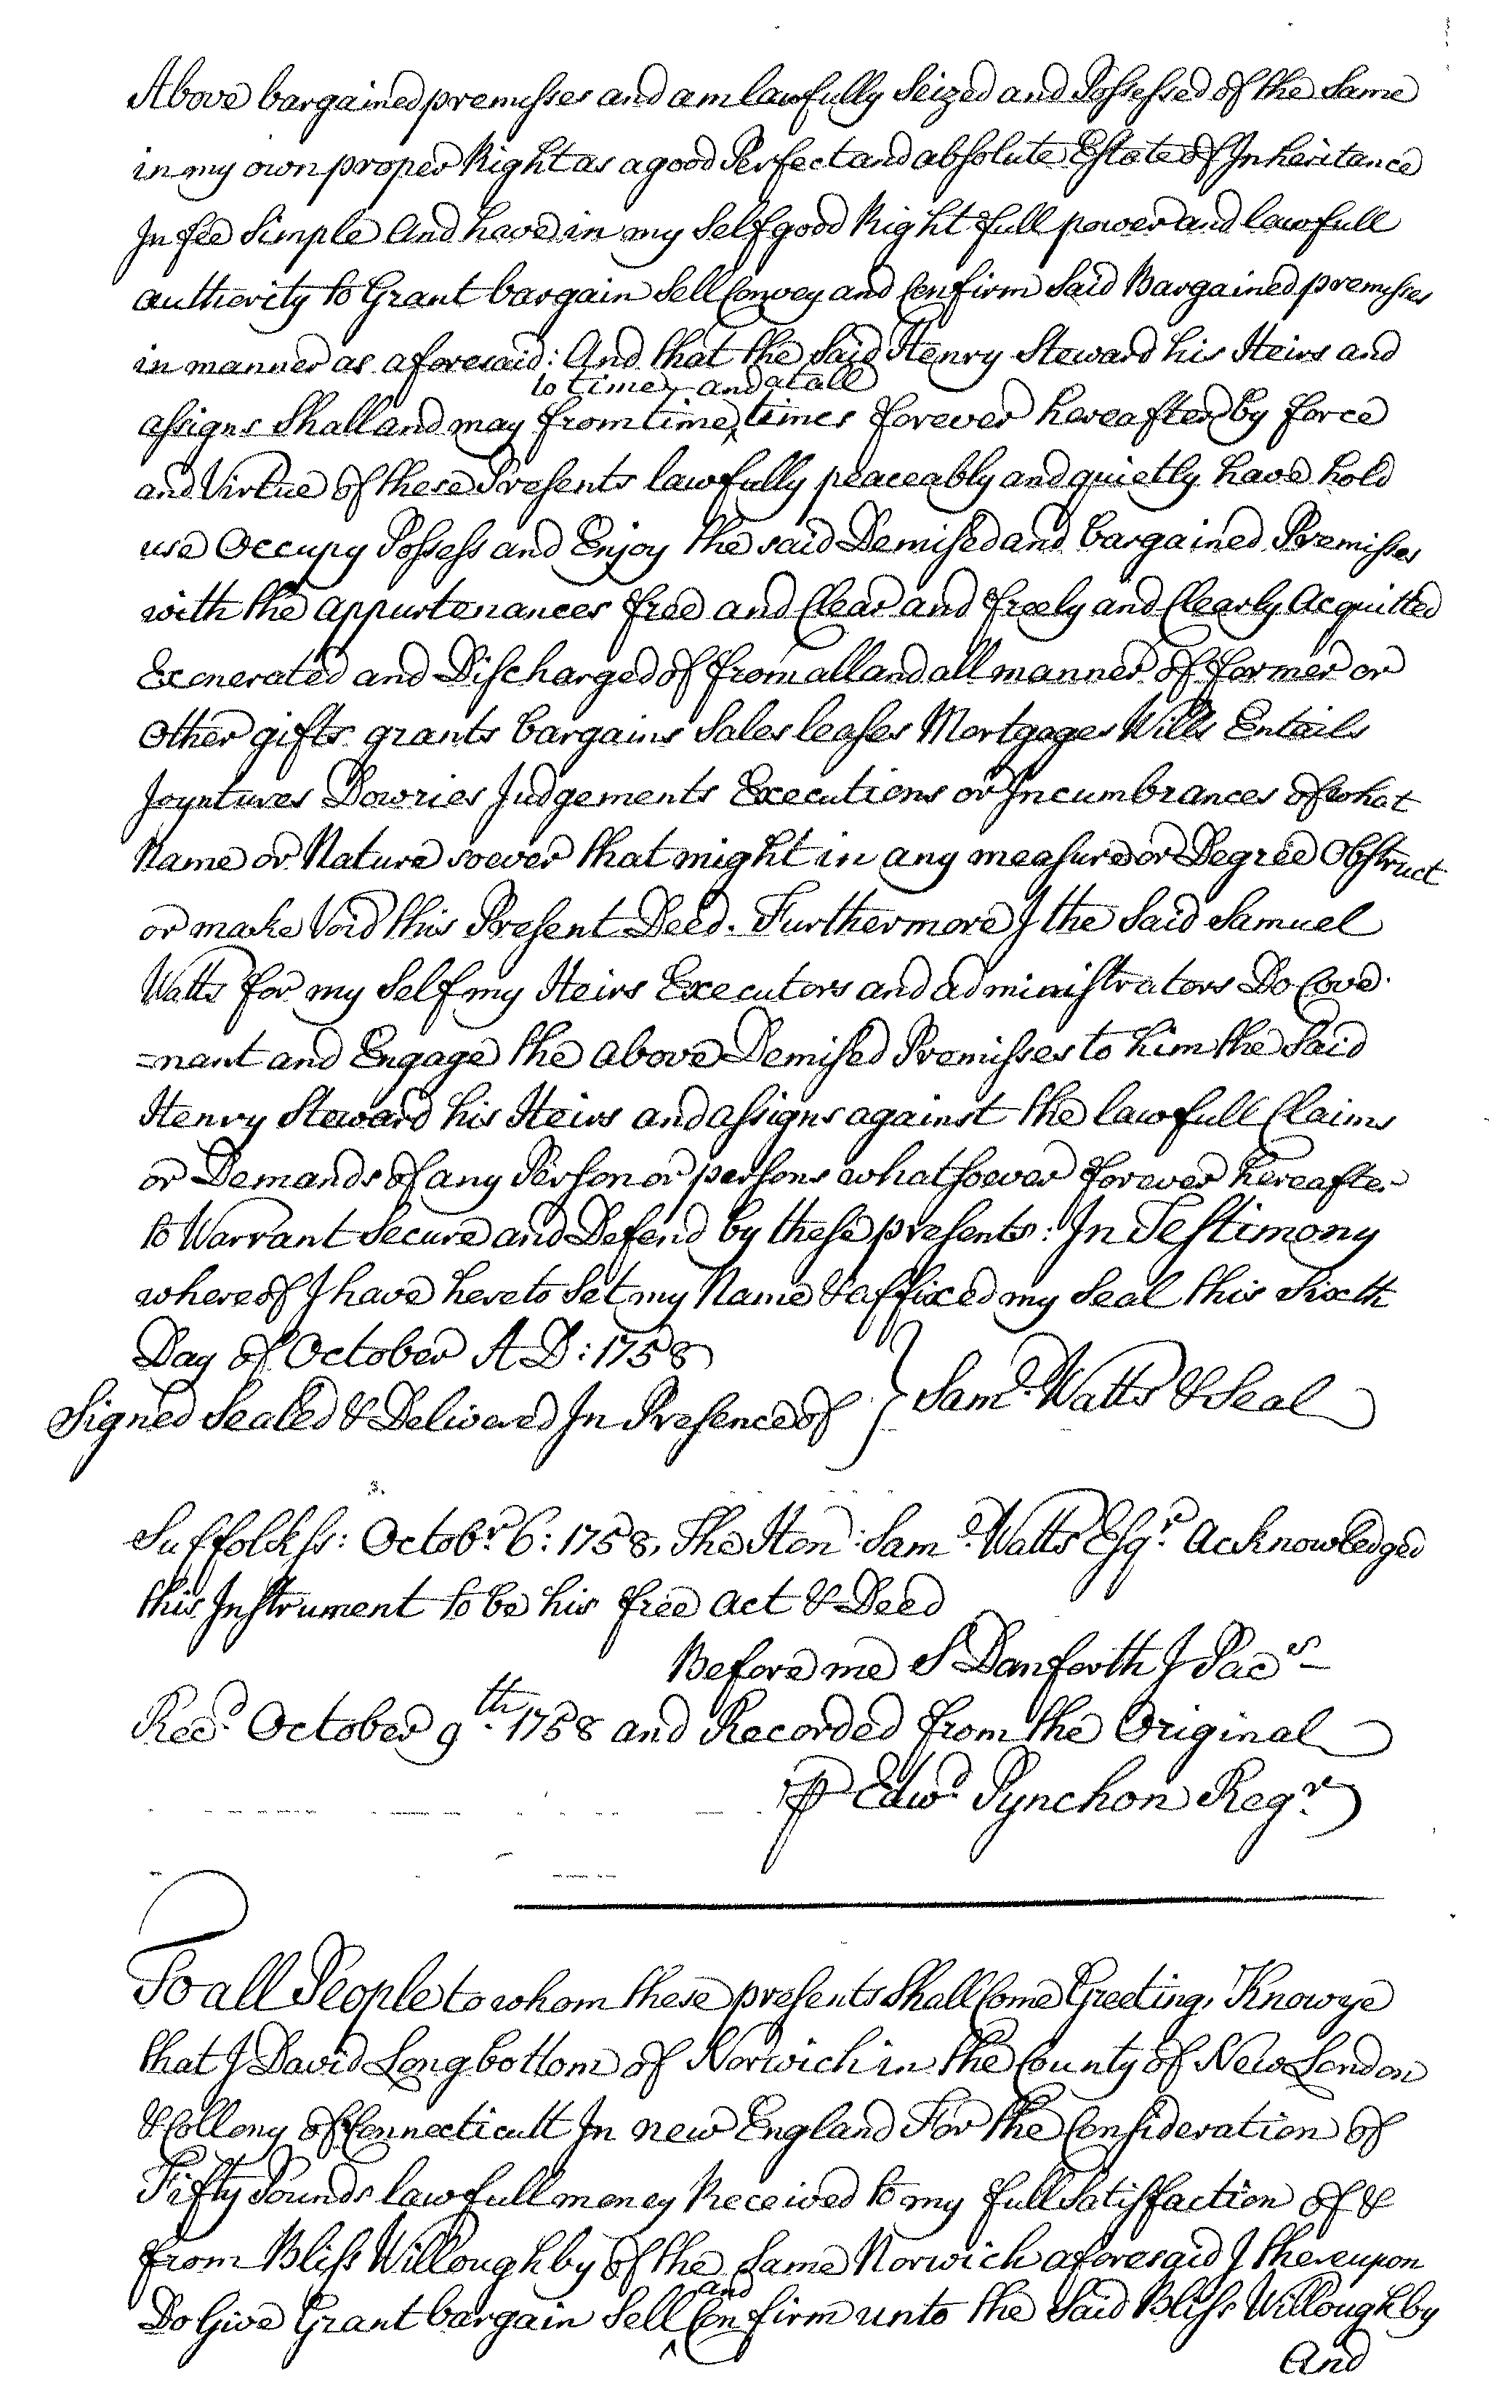 Above bargained premisses and am lawfully Seized and Possessed of the Same
in my own proper Right as a good Perfect and absolute Estate of Inheritance
In fee Simple And have in my Self good Right full power and lawfull
authority to Grant bargain Sell Convey and Confirm Said Bargained premisses
in manner as aforesaid: And that the Said Henry Steward his Heirs and
to time, and at all
assigns Shall and may from time ‸ times forever hereafter by force
and Virtue of these Presents lawfully peaceably and quietly have hold
use Occupy Possess and Enjoy the said Demised and bargained Premisses
with the appurtenances free and Clear and freely and Clearly Acquitted
Exonerated and Discharged of from all and all manner of former or
Other gifts grants bargains Sales leases Mortgages Wills Entails
Joyntures Dowries Judgements Executions or Incumbrances of what
Name or Nature soever that might in any measure or Degree Obstruct
or make Void this Present Deed. Furthermore I the Said Samuel
Watts for my Self my Heirs Executors and administrators Do Cove
=nant and Engage the above Demised Premisses to him the Said
Henry Steward his Heirs and assigns against the lawfull Claims
or Demands of any Person or persons whatsoever forever hereafter
to Warrant Secure and Defend by these presents: In Testimony
whereof I have hereto Set my Name & affixed my Seal this Sixth
Day of October A D: 1758
Signed Sealed & Delivered In Presence of } Sam.l Watts & Seal
Suffolk ss: Octob.r 6: 1758, The Hon: Sam.l Watts Esq.r Acknowledged
this Instrument to be his free act & Deed
Before me S Danforth J Pac.s
Rec.d October 9.th 1758 and Recorded from the Original
⅌ Edw.d Pynchon Reg.r
To all People to whom these presents Shall Come Greeting, Know ye
that I David Longbottom of Norwich in the County of New London
& Collony of Connecticutt In new England For the Consideration of
Fifty Pounds lawfull money Received to my full Satisfaction of &
from Bliss Willoughby of the Same Norwich aforesaid I thereupon
and
Do Give Grant bargain Sell ‸ Confirm unto the Said Bliss Willoughby
And